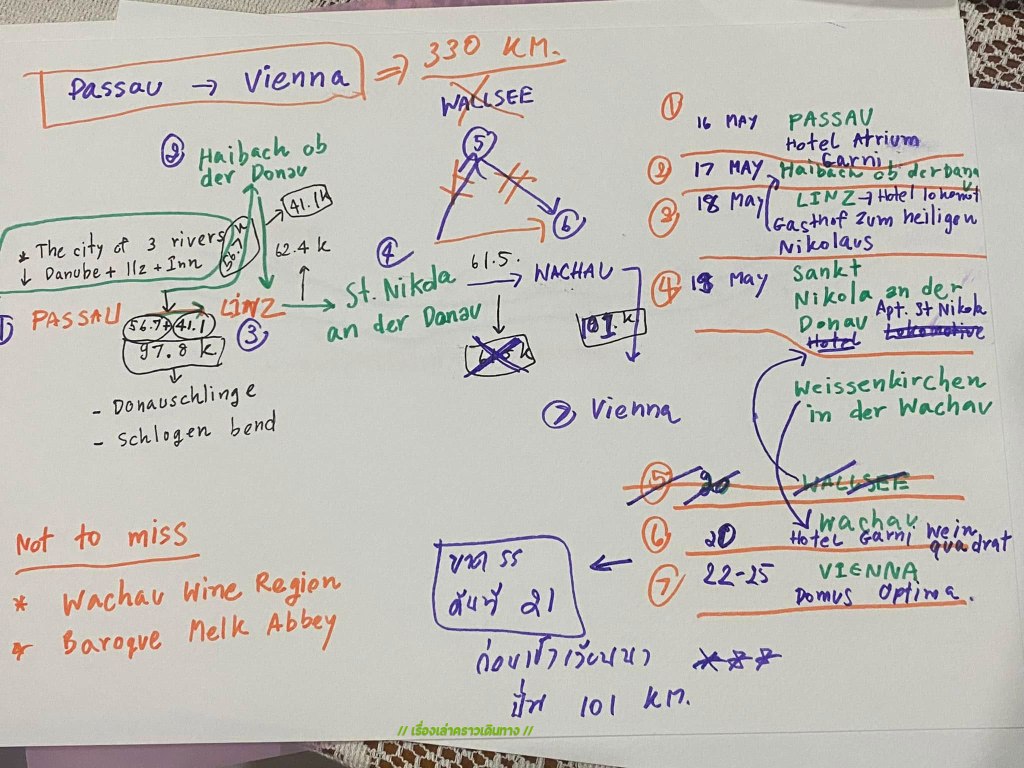 Passau → Vienna ⇒ 330 KM.
WALLSEE
② Haibach ob
der Donau
* The city of 3 rivers
↓ Danube + Ilz + Inn
41.1k
62.4 k
① PASSAU
56.7+41.1
97.8 k
LINZ
③
- Donauschlinge
- Schlogen bend
⑤
⑥
④
St. Nikola
an der Danau
61.5.
WACHAU
101.k
⑦ Vienna
① 16 MAY PASSAU
Hotel Atrium
Garni
② 17 MAY Haibach ob der Dana
③ 18 May LINZ → Hotel lokomot
Gasthof zum heiligen
Nikolaus
④ 19 May Sankt
Nikola an der
Donau Apt. St Nikola
Hotel Lokomotive
Weissenkirchen
in der Wachau
⑤ 20 WALLSEE
⑥ 20 Wachau
Hotel Garni Wein
quadrat
⑦ 22-25 VIENNA
Domus Optima.
Not to miss
* Wachau Wine Region
* Baroque Melk Abbey
ขาด รร
คืนที่ 21
ก่อนเข้าเวียนนา ***
ปั่น 101 KM.
// เรื่องเล่าคราวเดินทาง //